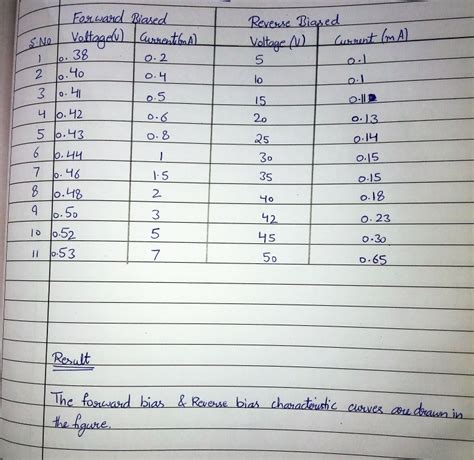 Forward Biased Reverse Biased
S.No Voltage(V) Current(mA) Voltage (V) Current (mA)
1 0.38 0.2 5 0.1
2 0.40 0.4 10 0.1
3 0.41 0.5 15 0.11
4 0.42 0.6 20 0.13
5 0.43 0.8 25 0.14
6 0.44 1 30 0.15
7 0.46 1.5 35 0.15
8 0.48 2 40 0.18
9 0.50 3 42 0.23
10 0.52 5 45 0.30
11 0.53 7 50 0.65
Result
The forward bias & Reverse bias characteristic curves are drawn in
the figure.